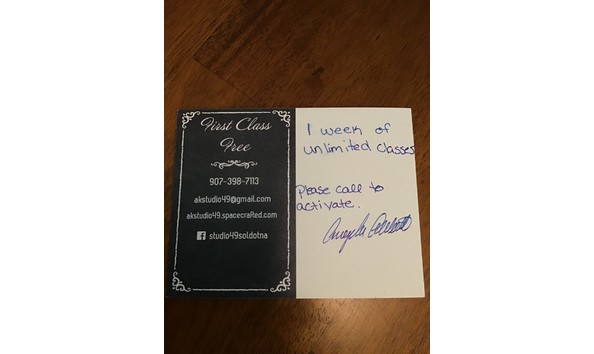 First Class
Free
907-398-7113
akstudio49@gmail.com
akstudio49.spacecrafted.com
studio49soldotna
1 week of
unlimited classes
Please call to
activate.